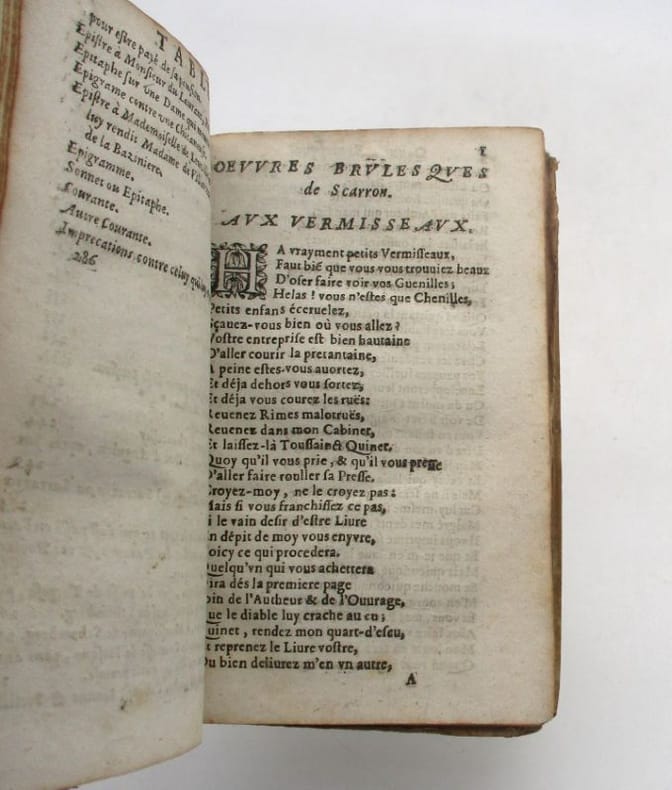 TABL
pour estre payé de sa pension.
Epistre à Monsieur du Laurent,
Epitaphe sur vne Dame qui
Epigrame contre vne Chicaneuse.
Epistre à Mademoiselle de
luy rendit Madame de
de la Baziniere.
Epigramme.
Sonnet ou Epitaphe.
Courante.
Autre Courante.
Imprecations contre celuy qui
286
1
OEVVRES BRVLESQVES
de Scarron.
AVX VERMISSEAVX.
HA vrayment petits Vermiſſeaux,
Faut bié que vous vous trouuiez beaux
D'oſer faire voir vos Guenilles;
Helas! vous n'eſtes que Chenilles,
Petits enfans éceruelez,
Sçauez-vous bien où vous allez?
Voſtre entrepriſe eſt bien hautaine
D'aller courir la pretantaine,
A peine eſtes-vous auortez,
Et déja dehors vous ſortez,
Et déja vous courez les ruës:
Reuenez Rimes malotruës,
Reuenez dans mon Cabinet,
Et laiſſez-là Touſſain & Quinet.
Quoy qu'il vous prie, & qu'il vous preſſe
D'aller faire rouller ſa Preſſe.
Croyez-moy, ne le croyez pas:
Mais ſi vous franchiſſez ce pas,
i le vain deſir d'eſtre Liure
n dépit de moy vous enyvre,
oicy ce qui procedera.
Quelqu'vn qui vous achettera
ira dés la premiere page
oin de l'Autheur & de l'Ouurage,
Que le diable luy crache au cu;
Quinet, rendez mon quart-d'eſcu,
t reprenez le Liure voſtre,
Ou bien deliurez m'en vn autre,
A